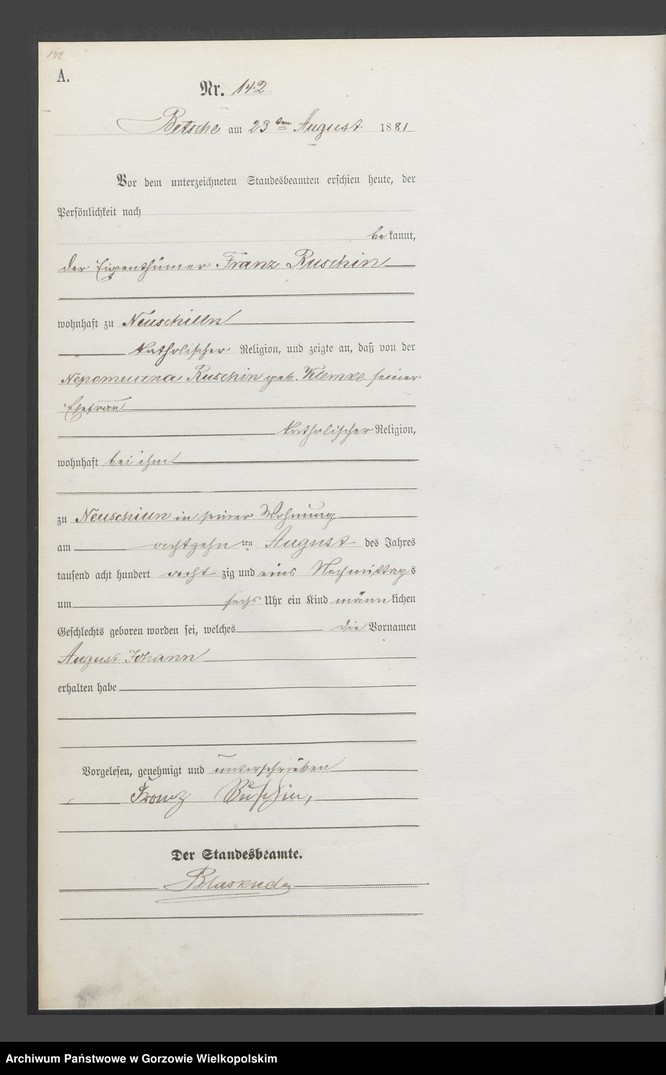 142
A.
Nr. 142.
Betsche am 23ten August 1881
Vor dem unterzeichneten Standesbeamten erschien heute, der
Persönlichkeit nach
bekannt,
der Eigenthümer Franz Ruschin
wohnhaft zu
katholischer Religion, und zeigte an, daß von der
Nepomucena Ruschin geb. Klemke seiner
Ehefrau
katholischer Religion,
wohnhaft bei ihm
zu in seiner Wohnung
am achtzehnten August des Jahres
tausend acht hundert acht zig und eins Nachmittags
um sechs Uhr ein Kind männlichen
Geschlechts geboren worden sei, welches die Vornamen
August Johann
erhalten habe
Vorgelesen, genehmigt und unterschrieben
Franz Ruschin,
Der Standesbeamte.
Archiwum Państwowe w Gorzowie Wielkopolskim